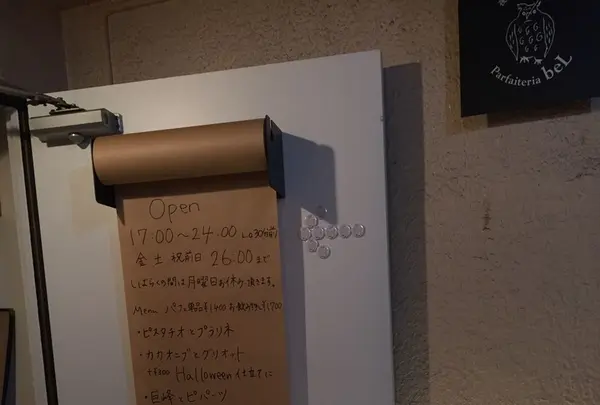 Parfaiteria beL
Open
17:00〜24:00 L.o30分前
金土祝前日 26:00まで
しばらくの間は月曜日お休み頂きます。
Menu パフェ単品¥1400 お飲み物付¥1700
・ピスタチオとプラリネ
・カカオニブとグリオット
+¥200 Halloween仕立てに
・巨峰とビバーツ